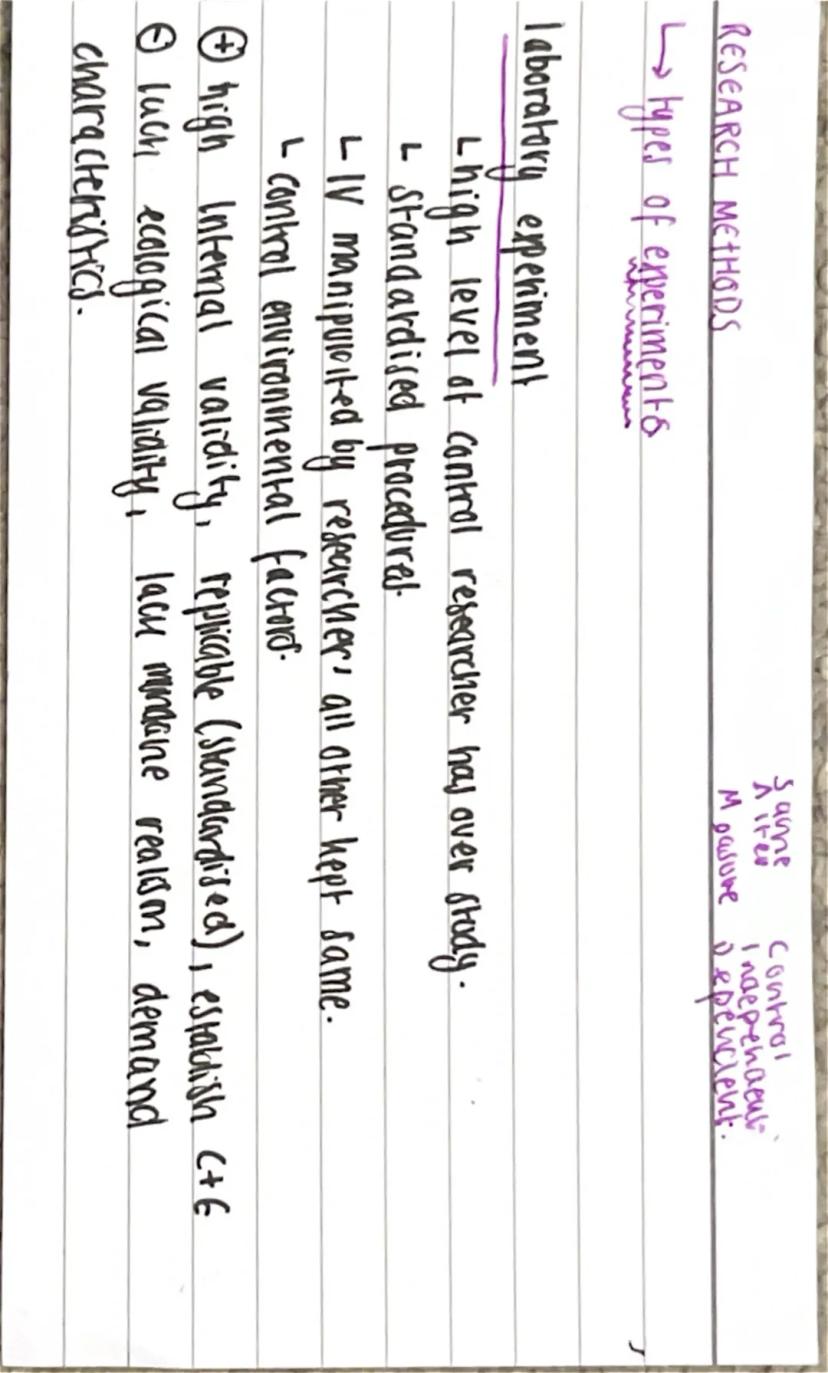 Same Control
Alter Independent
RESEARCH METHODS Measure Dependent.
↳ types of experiments
laboratory experiment
↳ high level of control researcher has over study.
↳ standardised procedures.
↳ IV manipulated by researcher, all other kept same.
↳ control environmental factors.
⊕ high internal validity, replicable (standardised), establish C+E
⊖ lack ecological validity, lack mundane realism, demand
characteristics.